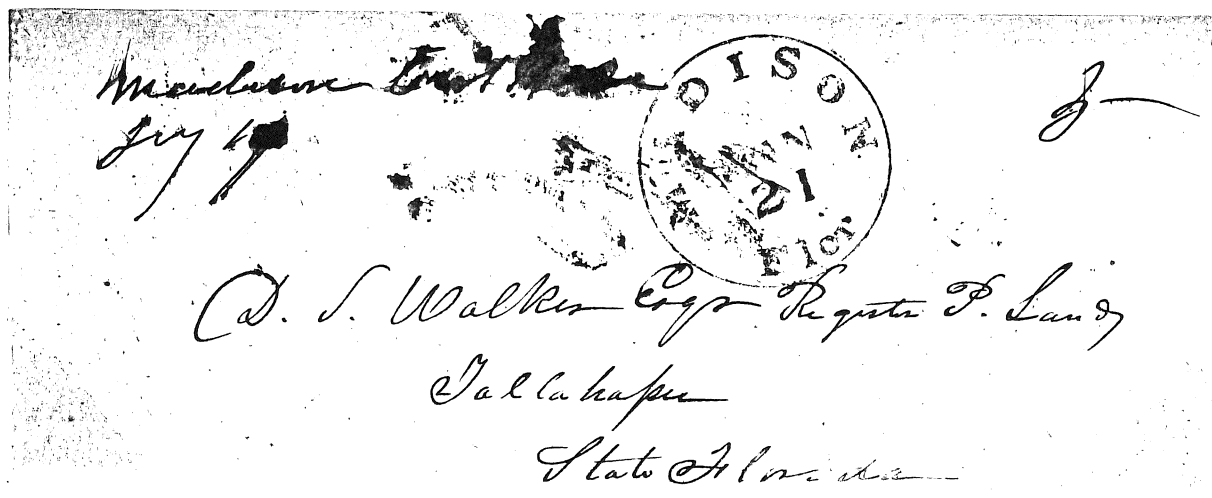 Madison Court House
DISON
21
Flor
D. S. Walker Esqr Register P. Lands
Tallahassee
State Florida